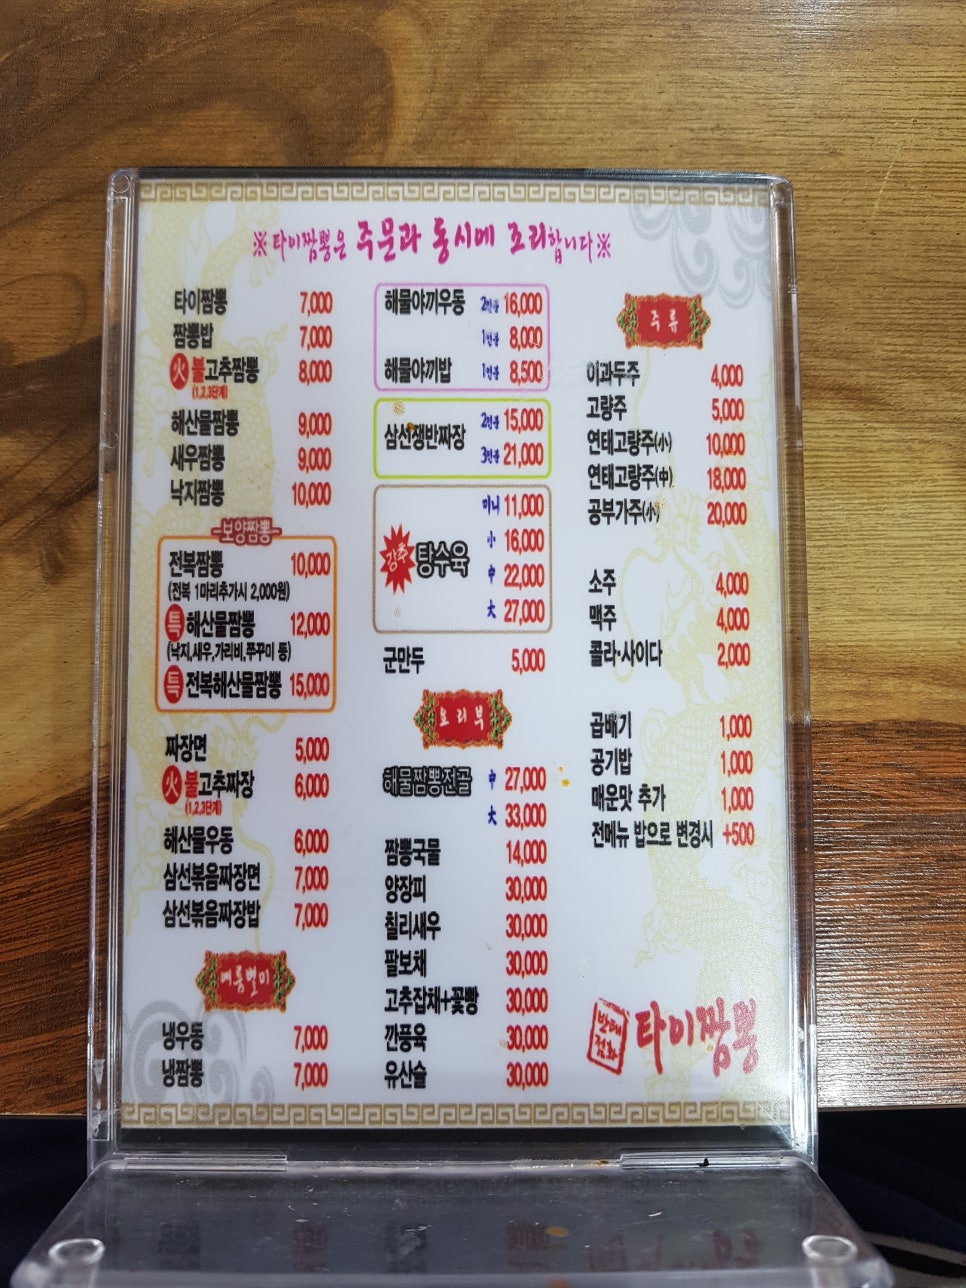 ※타이짬뽕은 주문과 동시에 조리합니다※
타이짬뽕 7,000
짬뽕밥 7,000
火 불고추짬뽕 8,000
(1,2,3단계)
해산물짬뽕 9,000
새우짬뽕 9,000
낙지짬뽕 10,000
보양짬뽕
전복짬뽕 10,000
(전복 1마리추가시 2,000원)
특 해산물짬뽕 12,000
(낙지,새우,가리비,쭈꾸미 등)
특 전복해산물짬뽕 15,000
짜장면 5,000
火 불고추짜장 6,000
(1,2,3단계)
해산물우동 6,000
삼선볶음짜장면 7,000
삼선볶음짜장밥 7,000
여름별미
냉우동 7,000
냉짬뽕 7,000
해물야끼우동 2인분 16,000
1인분 8,000
해물야끼밥 1인분 8,500
삼선쟁반짜장 2인분 15,000
3인분 21,000
강추 탕수육 미니 11,000
小 16,000
中 22,000
大 27,000
군만두 5,000
요리부
해물짬뽕전골 中 27,000
大 33,000
짬뽕국물 14,000
양장피 30,000
칠리새우 30,000
팔보채 30,000
고추잡채+꽃빵 30,000
깐풍육 30,000
유산슬 30,000
주류
이과두주 4,000
고량주 5,000
연태고량주(小) 10,000
연태고량주(中) 18,000
공부가주(小) 20,000
소주 4,000
맥주 4,000
콜라·사이다 2,000
곱배기 1,000
공기밥 1,000
매운맛 추가 1,000
전메뉴 밥으로 변경시 +500
반메
전화
타이짬뽕